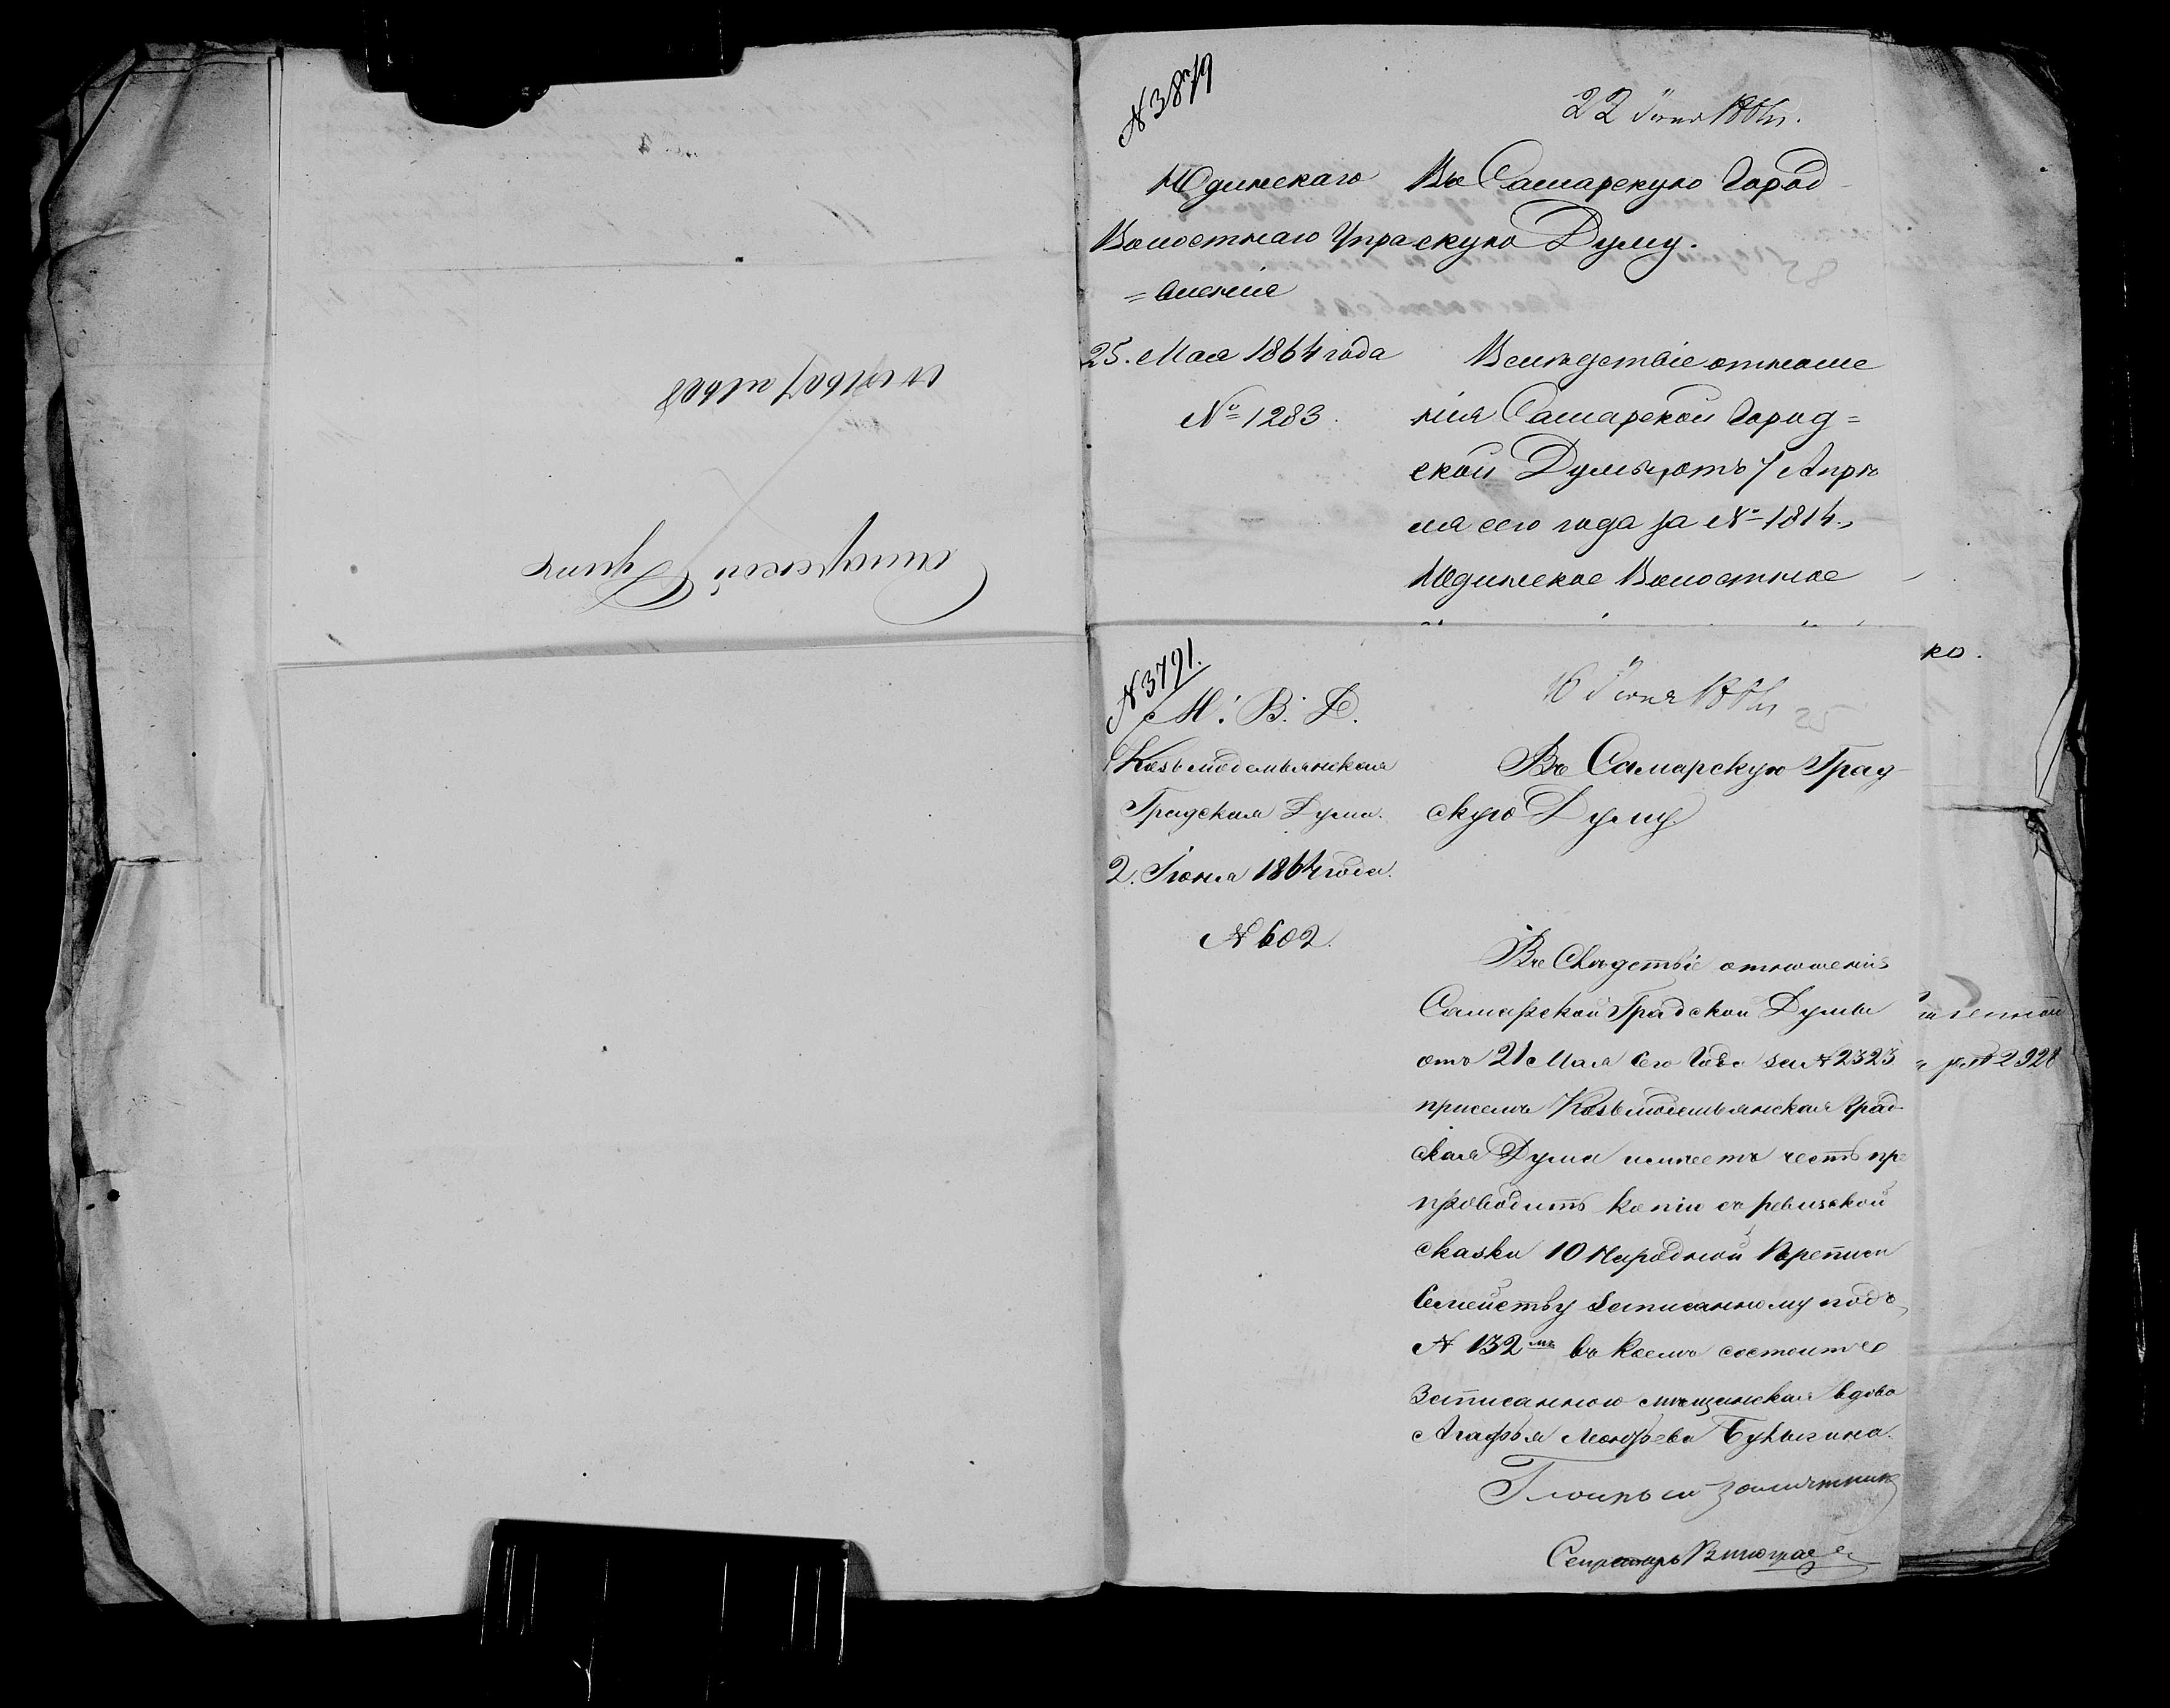 N 3879
22 Іюня 1864.
Юдинскаго
Волостнаго Упра
=вленія
25. Мая 1864 года
№ 1283.
Въ Самарскую Город
скую Думу.
Вслѣдствіе отноше
нія Самарской Город=
ской Думы, отъ 7 Апрѣ
ля сего года за № 1814,
Юдинское Волостное
ко.
N 3791.
М. В. Д.
Козьмодемьянская
Градская Дума.
2. Іюня 1864 года.
N 602.
16 Іюня 1864
25
Въ Самарскую Град
скую Думу.
Въ Слѣдствіе отношенія
Самарской Градской Думы
отъ 21 Мая Сего Года за N 2323
присемъ Козьмодемьянская Град
ская Дума имѣетъ честь пре
проводить копію съ ревизской
сказки 10 Народной Переписи
Семейству Записанному подъ
N 132мъ въ коемъ состоитъ
Записанною мѣщанская вдова
Агафья Леонтьева Булыгина.
Секретарь
N 2928
Самарской Думѣ